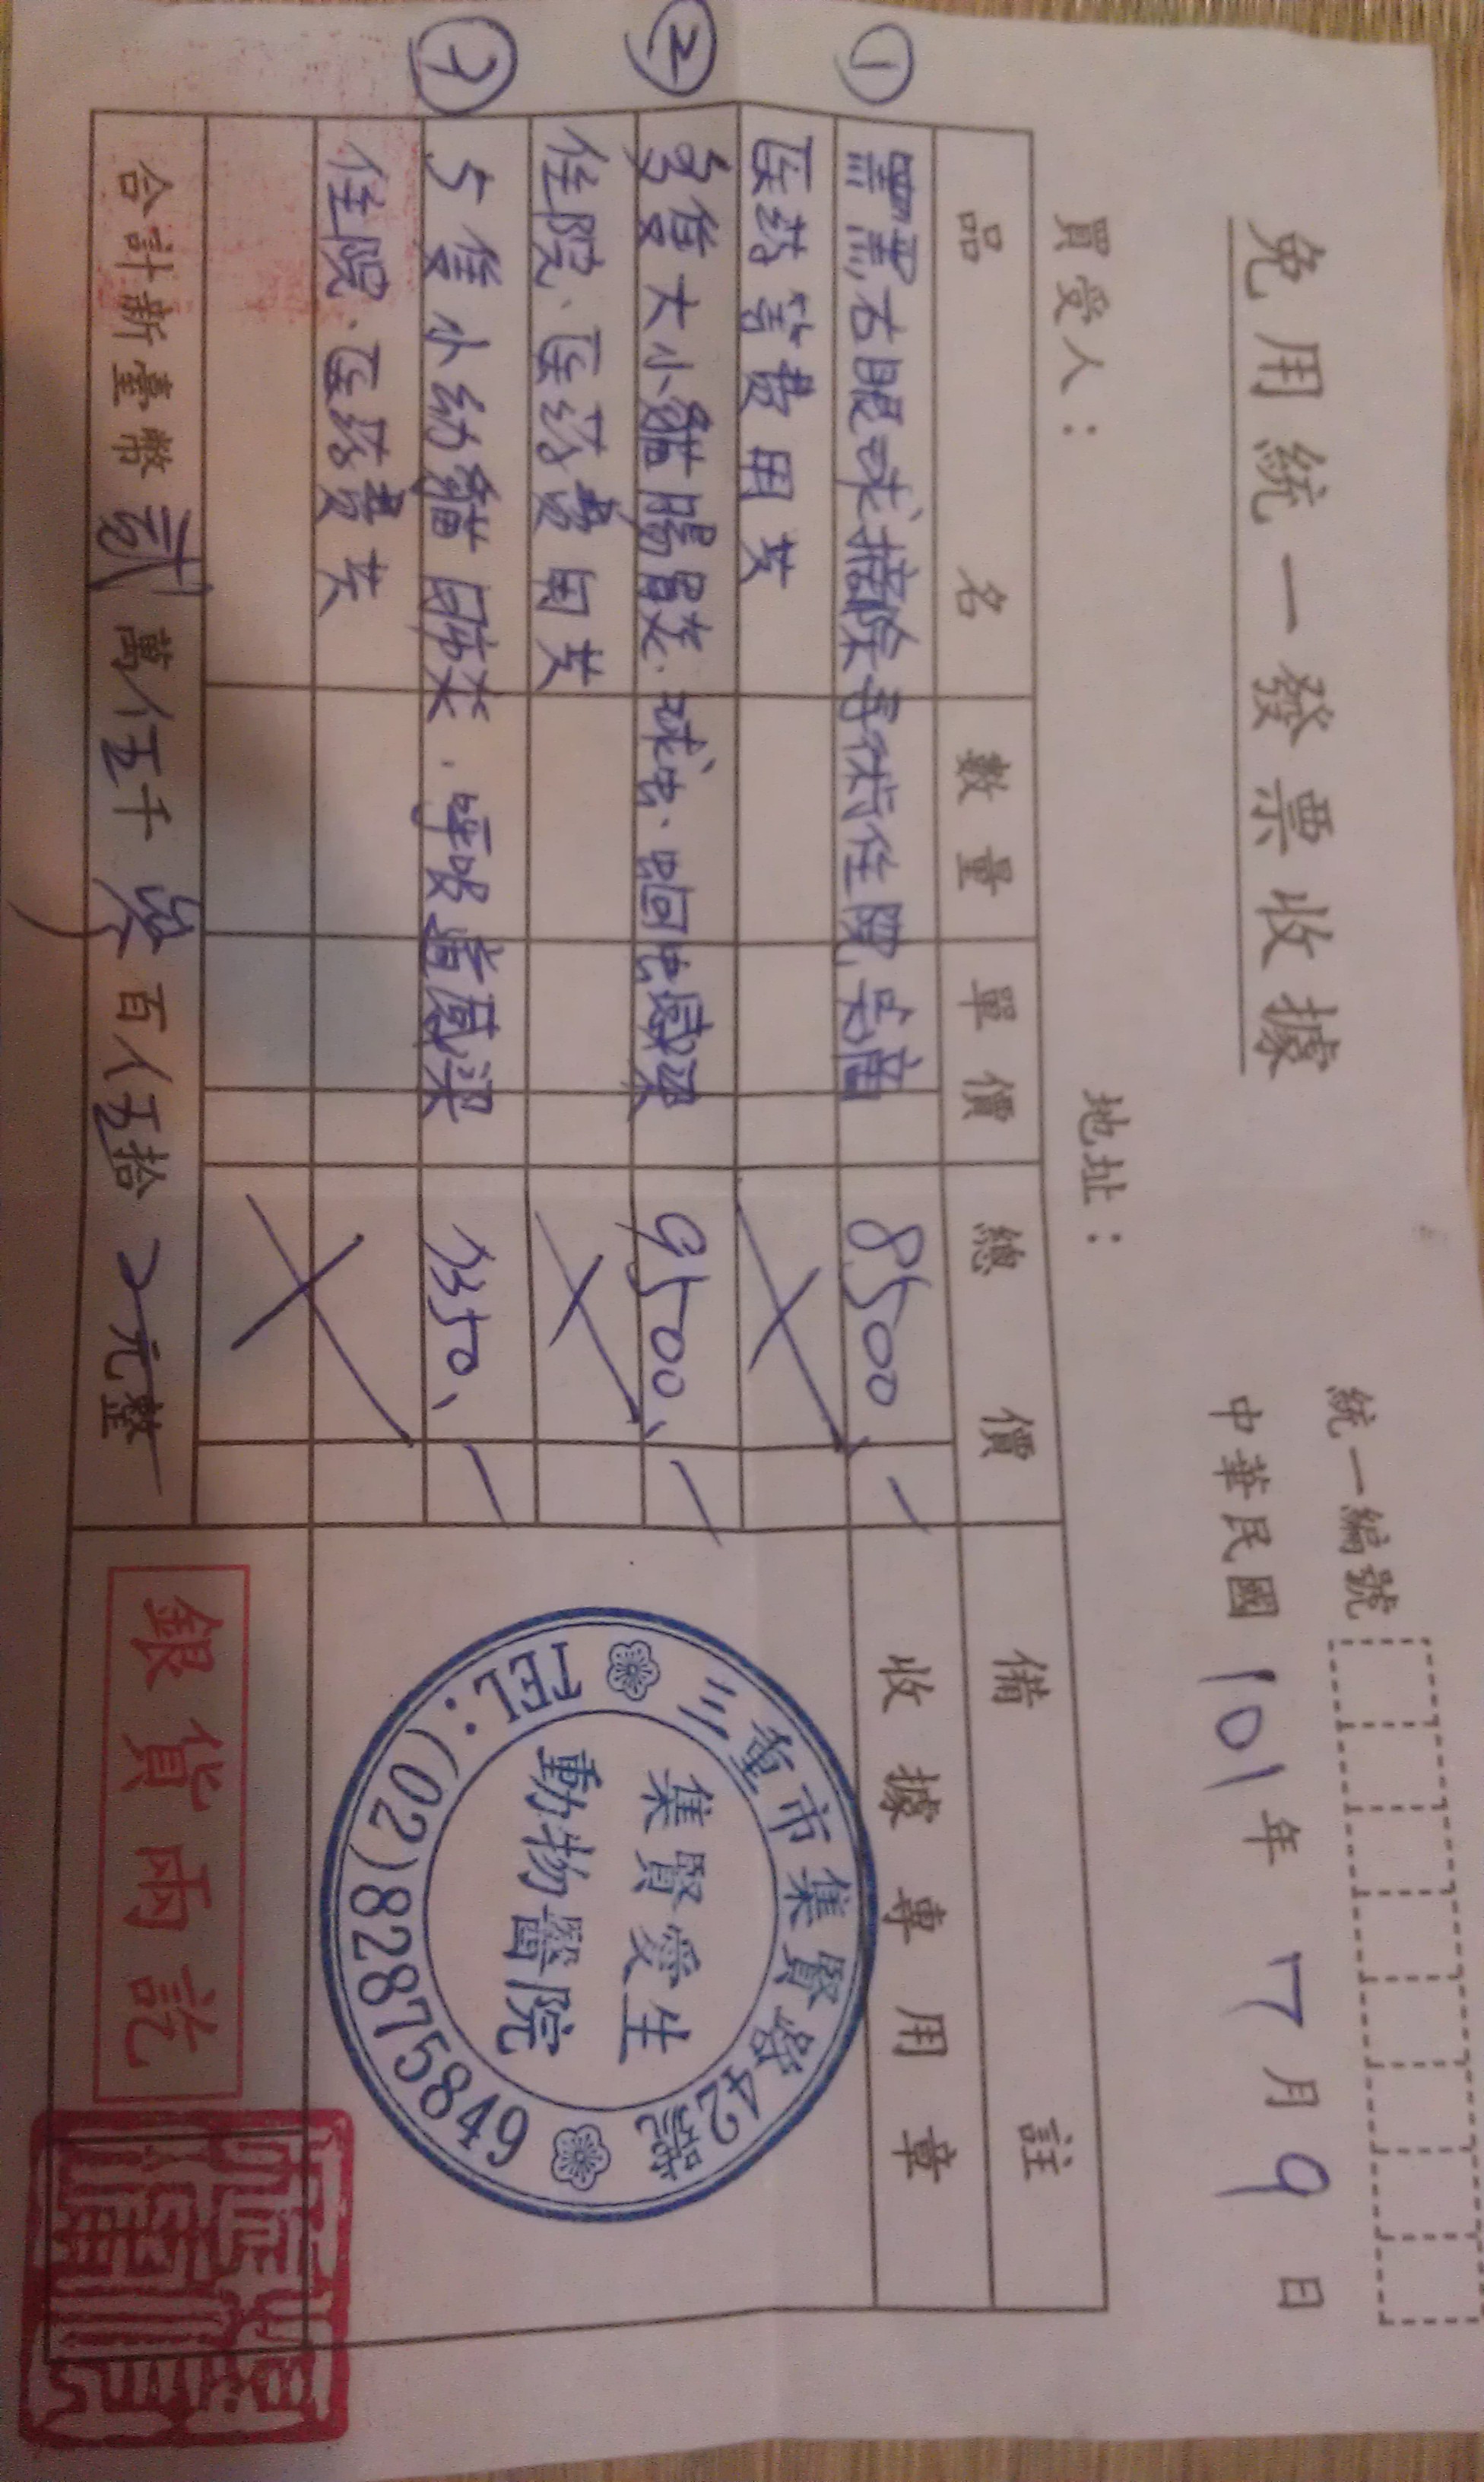 免用統一發票收據
統一編號
中華民國 101 年 7 月 9 日
買受人：
地址：
品名 數量 單價 總價 備註
① 黑黑,右眼球摘除手術住院,完畢 8500、
医药等費用共
② 多隻大小貓腸胃炎、球虫、蛔虫感染 9500、
住院、医药費用共
③ 5隻小幼貓肺炎、呼吸道感染
住院、医药費共
合計新臺幣 貳 萬 伍 千 參 百 伍 拾 元整
收據專用章
三重市集賢路42號
集賢愛生
動物醫院
TEL：(02)82875849
銀貨兩訖